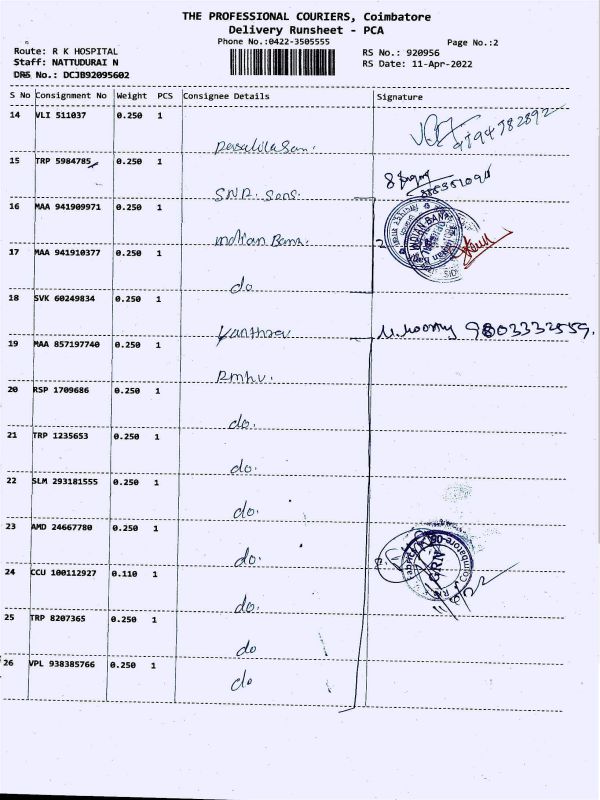 THE PROFESSIONAL COURIERS, Coimbatore
Delivery Runsheet - PCA
Phone No.:0422-3505555
Page No.:2
Route: R K HOSPITAL
RS No.: 920956
Staff: NATTUDURAI N
RS Date: 11-Apr-2022
DRS No.: DCJB92095602
S No Consignment No Weight PCS Consignee Details Signature
14 VLI 511037 0.250 1
9794782892
15 TRP 5984785 0.250 1
SNR. Sons.
16 MAA 941909971 0.250 1
Indian Bank.
INDIAN BANK
17 MAA 941910377 0.250 1
do.
18 SVK 60249834 0.250 1
M. Moorthy 9803332559.
19 MAA 857197740 0.250 1
20 RSP 1709686 0.250 1
do.
21 TRP 1235653 0.250 1
do.
22 SLM 293181555 0.250 1
do.
23 AMD 24667780 0.250 1
do.
GRN
Coimbatore
24 CCU 100112927 0.110 1
do.
25 TRP 8207365 0.250 1
do
26 VPL 938385766 0.250 1
do